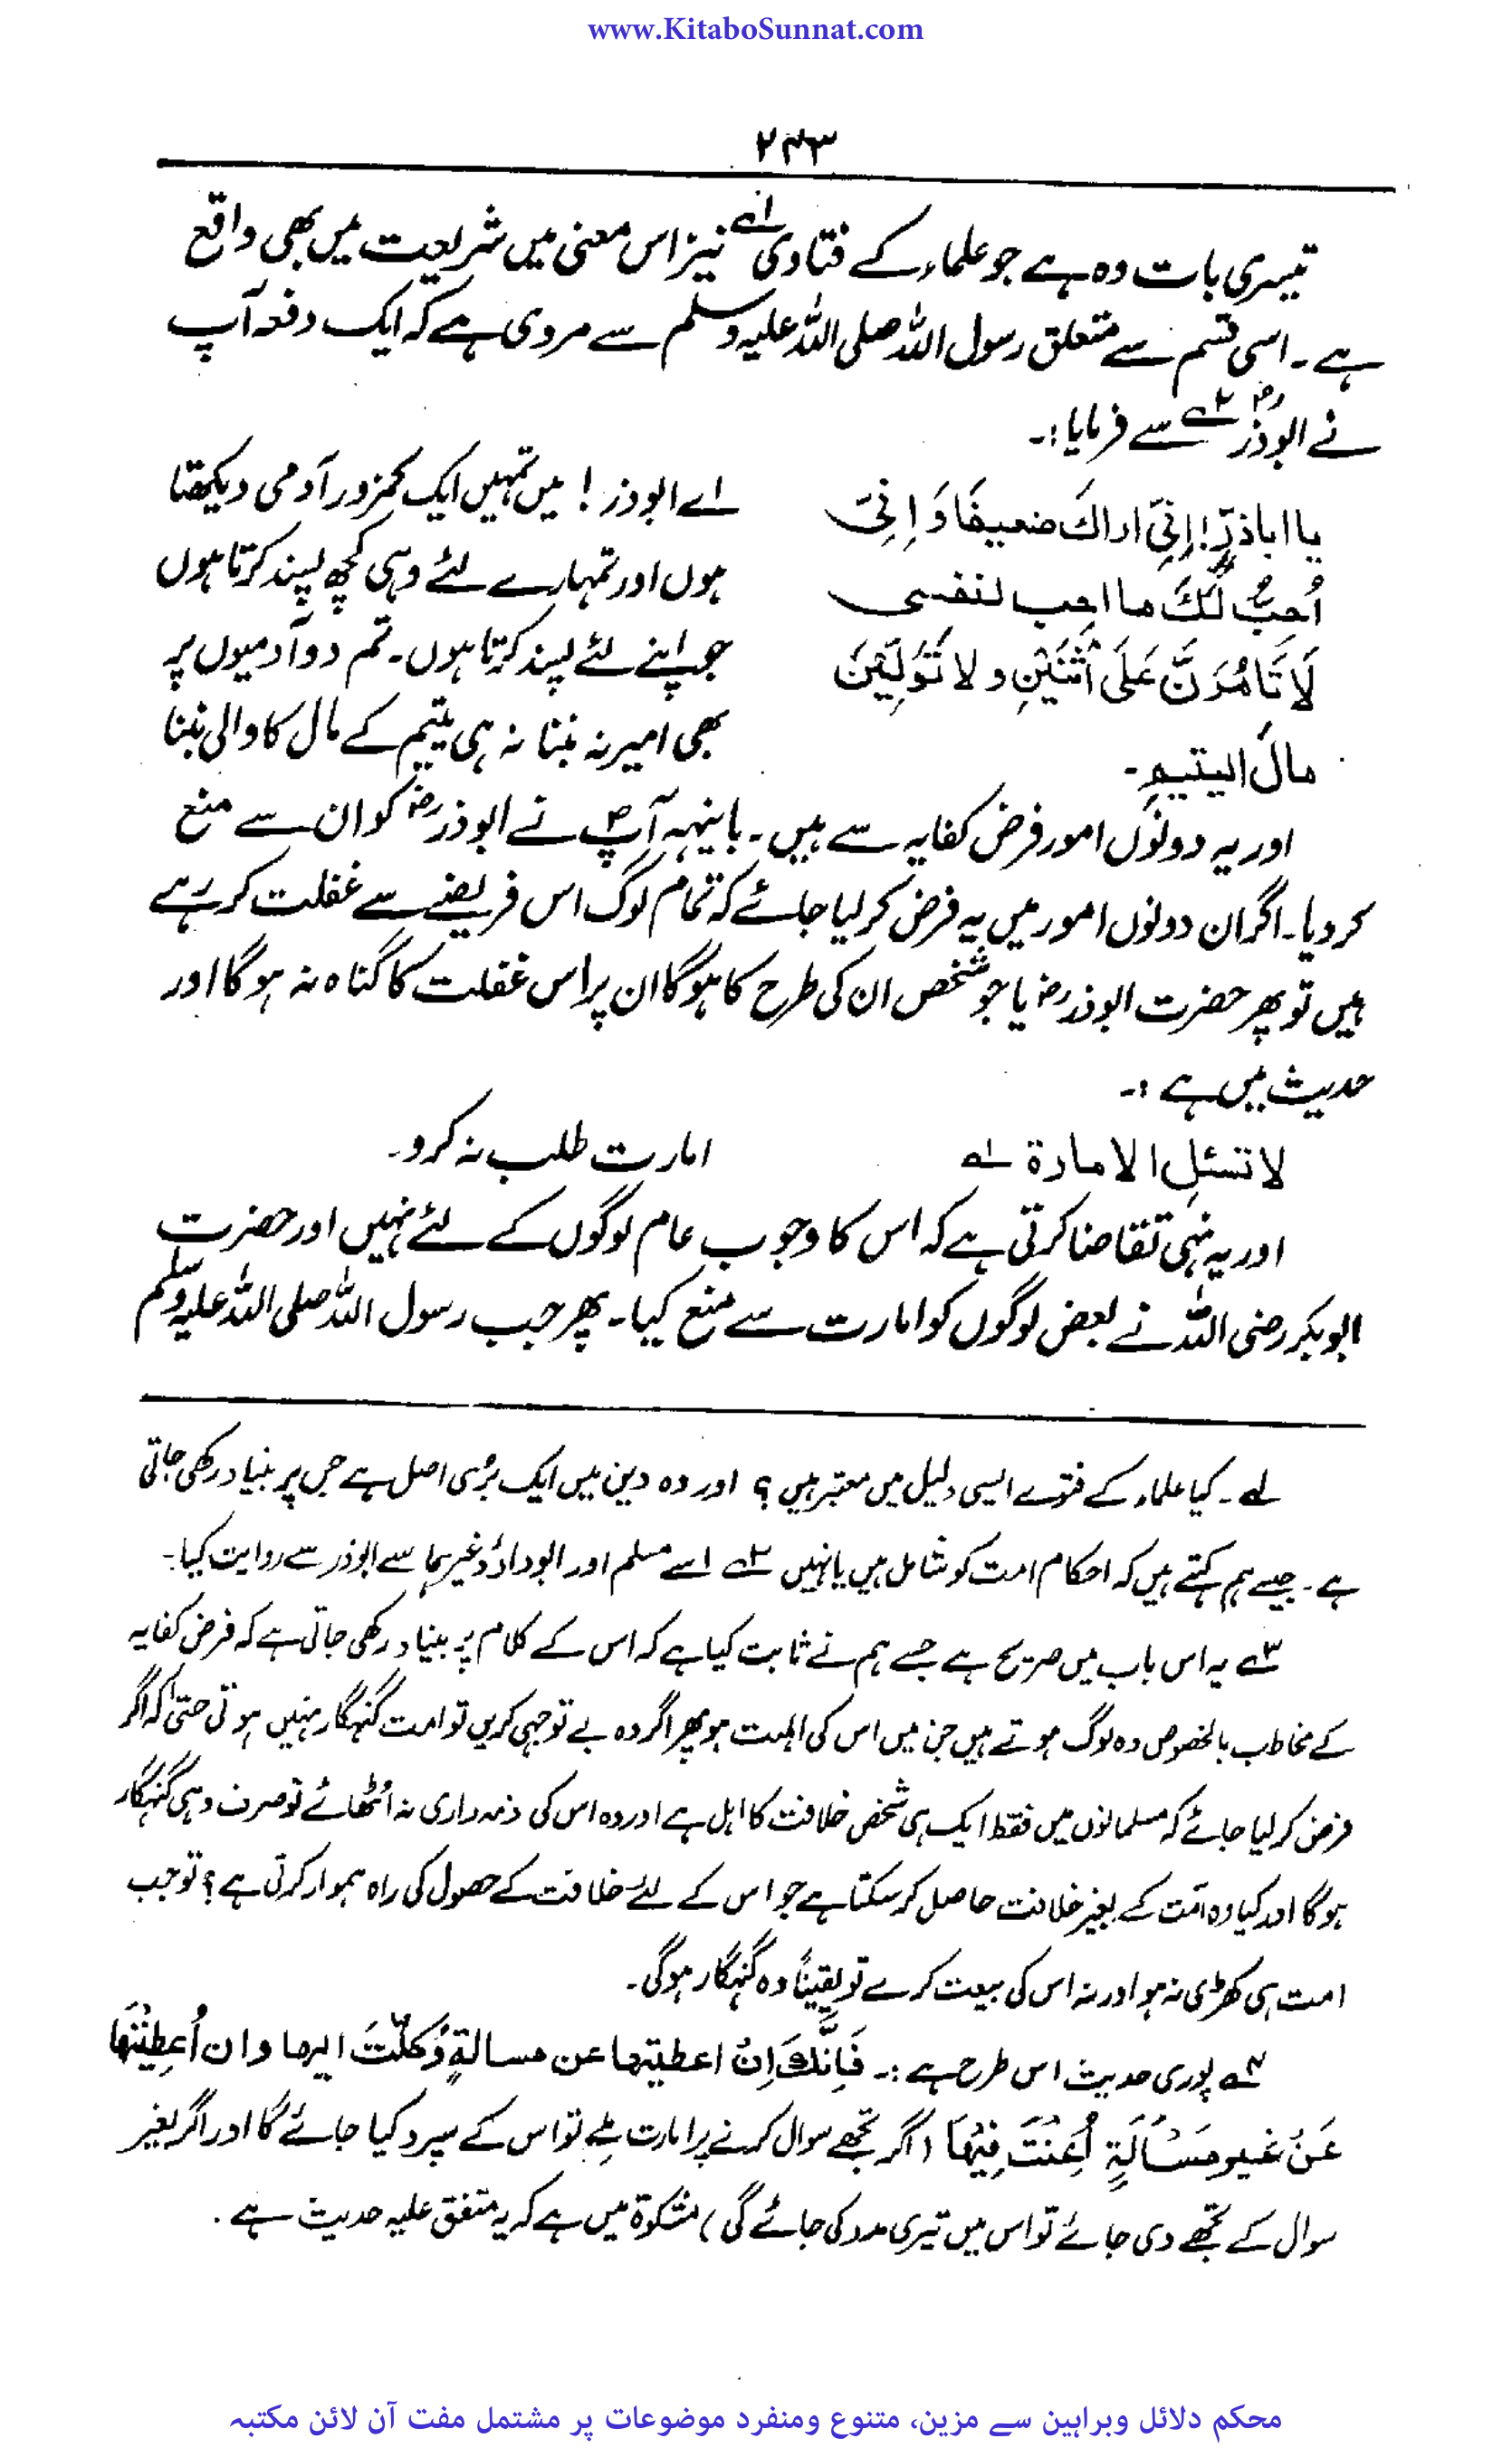 www.KitaboSunnat.com
۲۴۳
تیسری بات وہ ہے جو علماء کے فتاوی ۱ے نیز اس معنی میں شریعت میں بھی واقع
ہے۔ اسی قسم سے متعلق رسول اللہ صلی اللہ علیہ وسلم سے مروی ہے کہ ایک دفعہ آپ
نے ابوذرؓ ۲ے سے فرمایا:۔
یا اباذرٍّ! اِنِّیّ اراكَ ضعیفًا وَ اِنِّیّ
اے ابوذر! میں تمہیں ایک کمزور آدمی دیکھتا
اُحِبُّ لَكَ ما احِب لنفسی
ہوں اور تمہارے لئے وہی کچھ پسند کرتا ہوں
لَا تَأمُرَنَّ عَلَی اثْنَیْنِ و لا تَوَلِّیَنَّ
جو اپنے لئے پسند کرتا ہوں۔ تم دو آدمیوں پر
مالَ الیتیمِ۔
بھی امیر نہ بننا نہ ہی یتیم کے مال کا والی بننا
اور یہ دونوں امور فرض کفایہ سے ہیں۔ باینہہ آپؐ نے ابوذرؓ کو ان سے منع
کر دیا۔ اگر ان دونوں امور میں یہ فرض کر لیا جائے کہ تمام لوگ اس فریضے سے غفلت کر رہے
ہیں تو پھر حضرت ابوذرؓ یا جو شخص ان کی طرح کا ہوگا ان پر اس غفلت کا گناہ نہ ہوگا اور
حدیث میں ہے :۔
لا تسئلِ الامارة ۱ے
امارت طلب نہ کرو۔
اور یہ نہی تقاضا کرتی ہے کہ اس کا وجوب عام لوگوں کے لئے نہیں اور حضرت
ابوبکر رضی اللہ نے بعض لوگوں کو امارت سے منع کیا۔ پھر جب رسول اللہ صلی اللہ علیہ وسلم
لے۔ کیا علماء کے فتوے ایسی دلیل میں معتبر ہیں؟ اور وہ دین میں ایک بڑی اصل ہے جس پر بنیاد رکھی جاتی
ہے۔ جیسے ہم کہتے ہیں کہ احکام امت کو شامل ہیں یا نہیں ۲ے اسے مسلم اور ابوداؤد وغیرہما سے ابوذر سے روایت کیا۔
۳ے یہ اس باب میں صریح ہے جسے ہم نے ثابت کیا ہے کہ اس کے کلام پر بنیاد رکھی جاتی ہے کہ فرض کفایہ
کے مخاطب بالخصوص وہ لوگ ہوتے ہیں جن میں اس کی اہلیت ہو پھر اگر وہ بے توجہی کریں تو امت گنہگار نہیں ہوتی حتیٰ کہ اگر
فرض کر لیا جائے کہ مسلمانوں میں فقط ایک ہی شخص خلافت کا اہل ہے اور وہ اس کی ذمہ داری نہ اٹھائے تو صرف وہی گنہگار
ہوگا اور کیا وہ امّت کے بغیر خلافت حاصل کر سکتا ہے جو اس کے لئے خلافت کے حصول کی راہ ہموار کرتی ہے؟ تو جب
امت ہی کھڑی نہ ہو اور نہ اس کی بیعت کرے تو یقیناً وہ گنہگار ہوگی۔
۴ے پوری حدیث اس طرح ہے :۔ فَاِنَّكَ اِنْ اعطیتھا عن مسالةٍ وُکِلْتَ الیھا وان اُعطِیْتَھا
عَنْ غیر مَسْاَلَةٍ اُعِنْتَ فِیْھَا (اگر تجھے سوال کرنے پر امارت ملے تو اس کے سپرد کیا جائے گا اور اگر بغیر
سوال کے تجھے دی جائے تو اس میں تیری مدد کی جائے گی) مشکوۃ میں ہے کہ یہ متفق علیہ حدیث ہے۔
محکم دلائل وبراہین سے مزین، متنوع ومنفرد موضوعات پر مشتمل مفت آن لائن مکتبہ